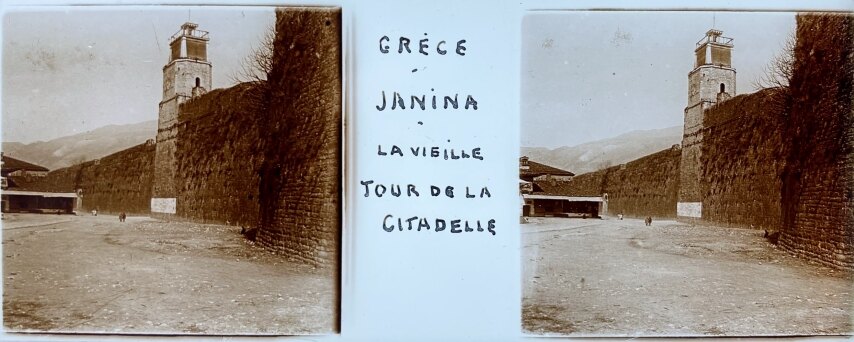 GRÈCE
JANINA
LA VIEILLE
TOUR DE LA
CITADELLE